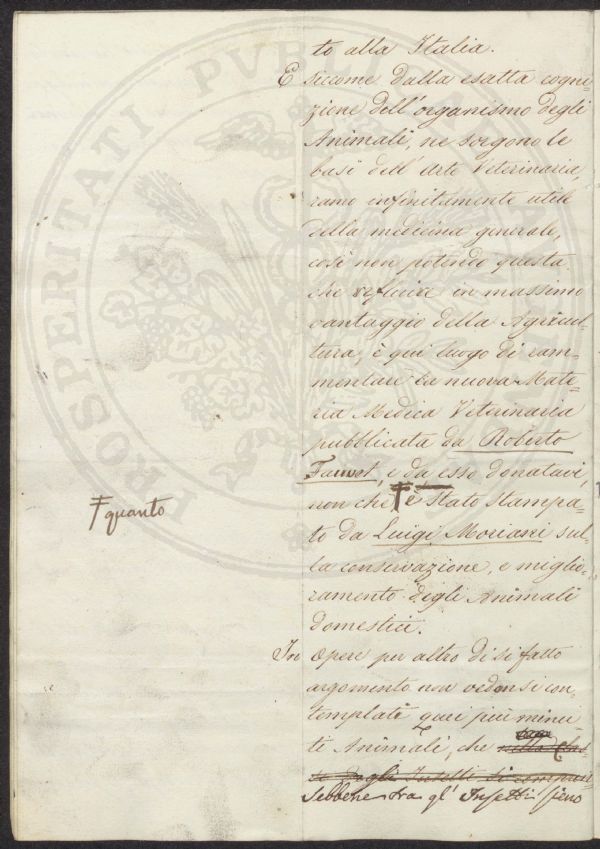 PROSPERITATI PUBLICAE AU
to alla Italia.
E siccome dalla esatta cogni-
zione dell'organismo degli
Animali, ne sorgono le
basi dell'Arte Veterinaria,
ramo infinitamente utile
della medicina generale,
così non potendo questa
che refluire in massimo
vantaggio della Agricul-
tura, è qui luogo di ram-
mentare la nuova Mate-
ria Medica Veterinaria
pubblicata da Roberto
Fauvet, e da esso donataci,
non che Ŧ è stato stampa-
Ŧ quanto
to da Luigi Moriani sul-
la conservazione, e miglio-
ramento degli Animali
Domestici.
In Opere per altro di sì fatto
argomento non vedonsi con-
templati quei più minu-
ti Animali, che
sebbene tra gl'Insetti sieno